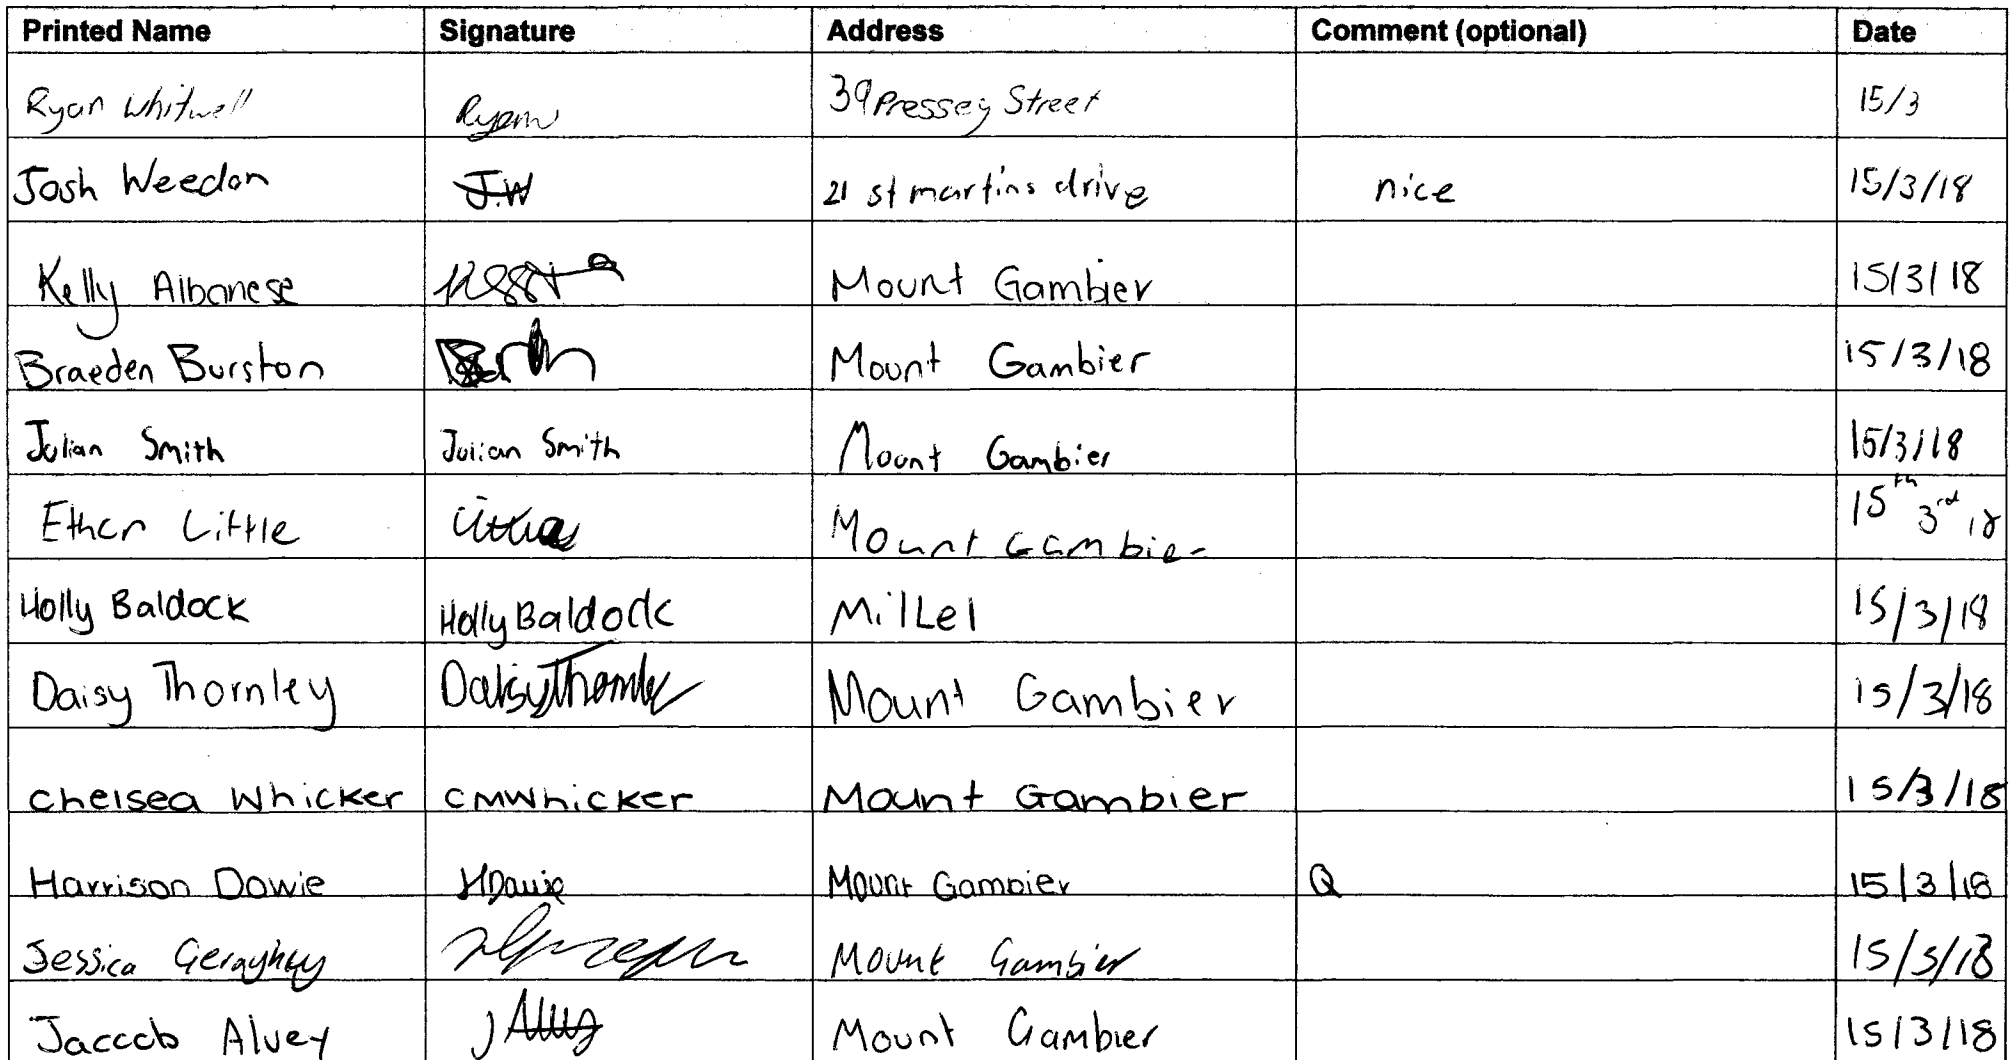 Printed Name Signature Address Comment (optional) Date
Ryan Whitwell Ryan 39 Pressey Street 15/3
Josh Weedon J.W 21 st martins drive nice 15/3/18
Kelly Albanese Mount Gambier 15/3/18
Braeden Burston Mount Gambier 15/3/18
Julian Smith Julian Smith Mount Gambier 15/3/18
Ethan Little Mount Gambier 15th 3rd 18
Holly Baldock Holly Baldock Millel 15/3/18
Daisy Thornley Daisy Thornley Mount Gambier 15/3/18
Chelsea Whicker CMWhicker Mount Gambier 15/3/18
Harrison Dowie HDowie Mount Gambier Q 15/3/18
Jessica Mount Gambier 15/3/18
Jacccb Alvey J Alvey Mount Gambier 15/3/18